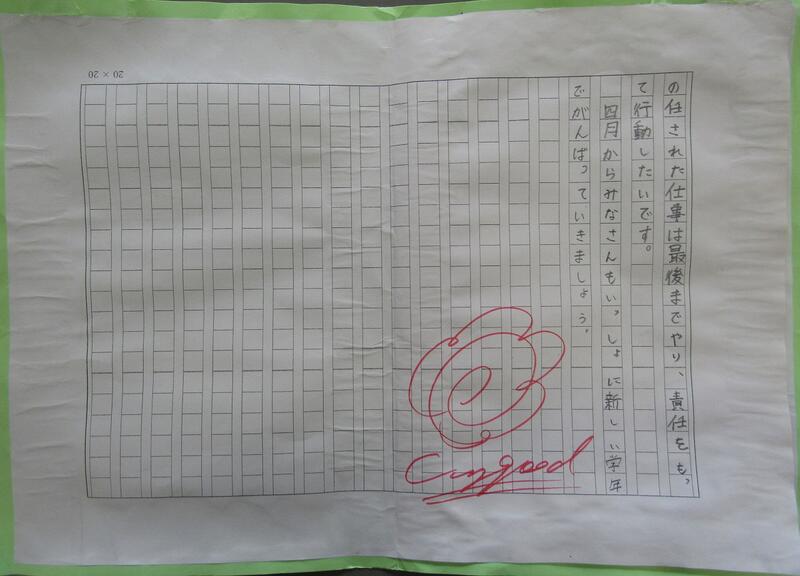 の任された仕事は最後までやり、責任をもっ
て行動したいです。
四月からみなさんもいっしょに新しい学年
でがんばっていきましょう。
good
20×20